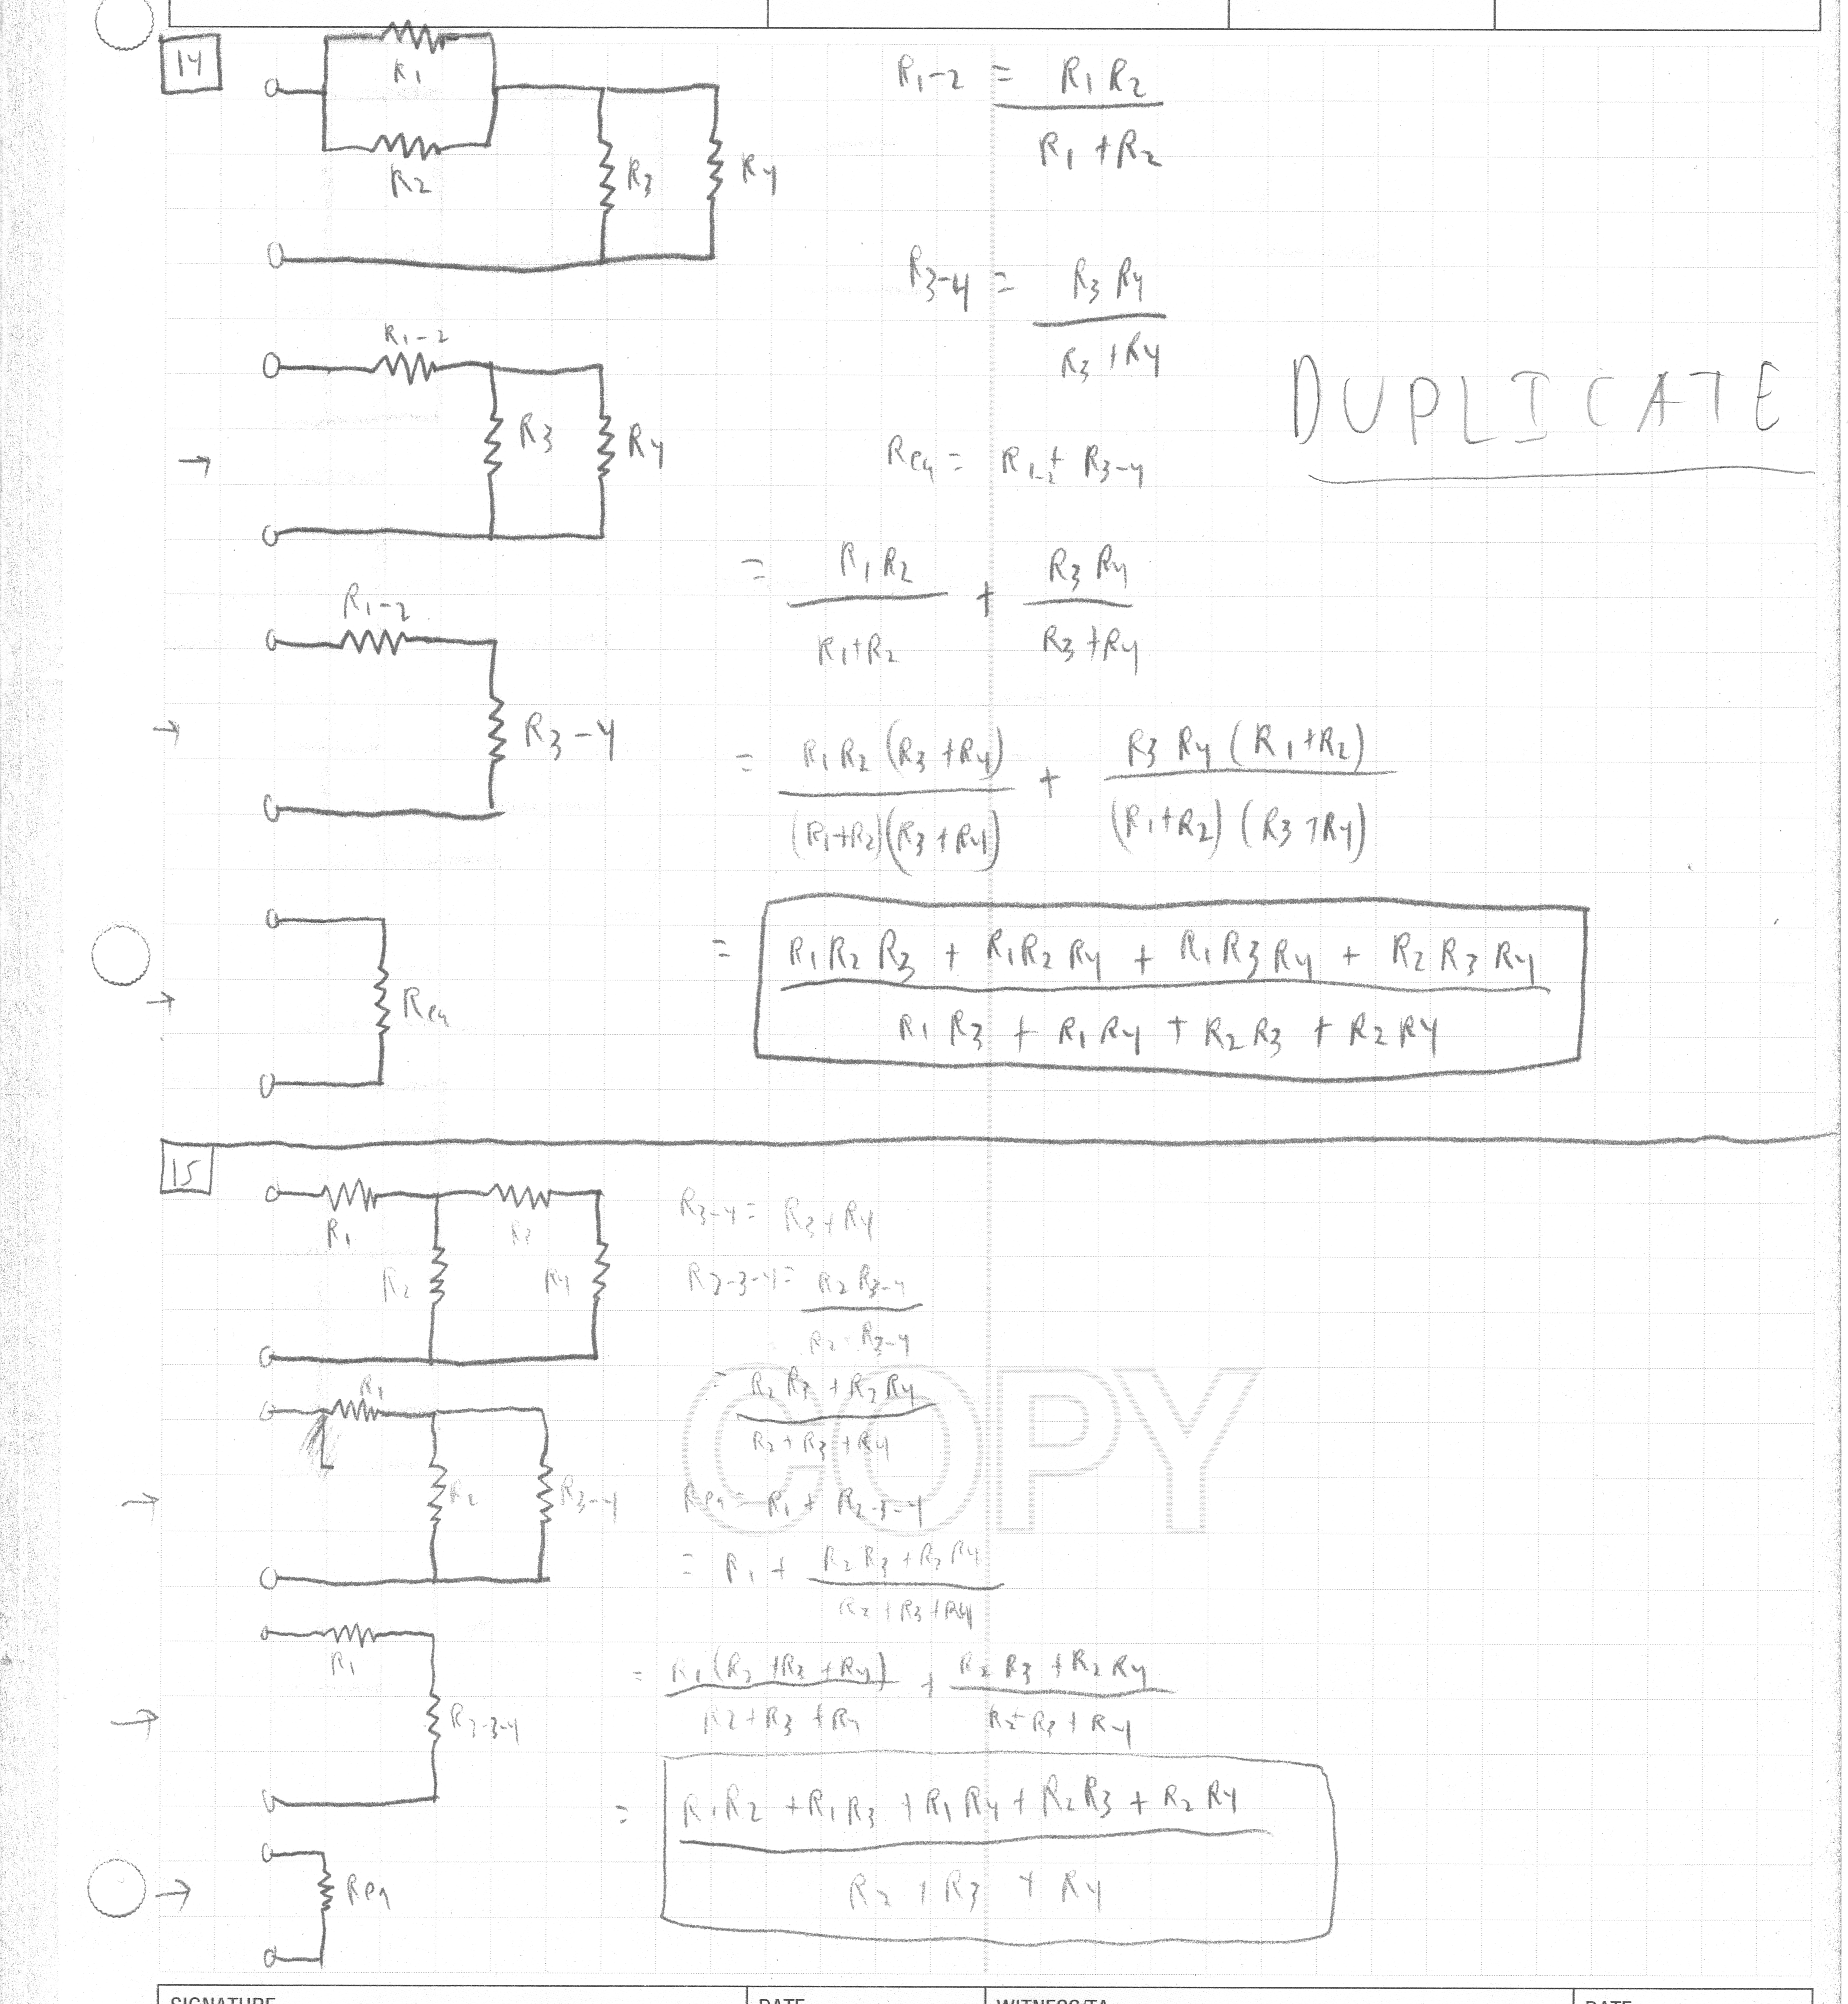 14
R1
R2
R3
R4
R1-2 = R1 R2
R1 + R2
R3-4 = R3 R4
R3 + R4
DUPLICATE
R1-2
R3
R4
Req = R1-2 + R3-4
= R1 R2 + R3 R4
R1 + R2 R3 + R4
R1-2
R3-4
= R1 R2 (R3 + R4) + R3 R4 (R1 + R2)
(R1 + R2)(R3 + R4) (R1 + R2) (R3 + R4)
Req
= R1 R2 R3 + R1 R2 R4 + R1 R3 R4 + R2 R3 R4
R1 R3 + R1 R4 + R2 R3 + R2 R4
15
R1
R3
R2
R4
R3-4 = R3 + R4
R2-3-4 = R2 R3-4
R2 + R3-4
= R2 R3 + R2 R4
R2 + R3 + R4
COPY
R1
R2
R3-4
Req = R1 + R2-3-4
= R1 + R2 R3 + R2 R4
R2 + R3 + R4
R1
R2-3-4
= R1 (R2 + R3 + R4) + R2 R3 + R2 R4
R2 + R3 + R4 R2 + R3 + R4
= R1 R2 + R1 R3 + R1 R4 + R2 R3 + R2 R4
R2 + R3 + R4
Req
SIGNATURE DATE WITNESS/TA DATE